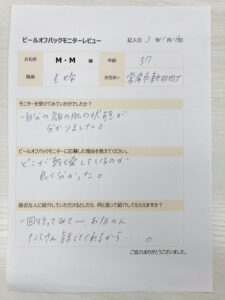 ピールオフパックモニターレビュー
記入日 3年11月16日
お名前 M・M 様 年齢 37
職業 主婦 お住まい 常滑市新田町
モニターを受けてみていかがでしたか？
・自分の顔の肌の状態が
分かりました。
ピールオフパックモニターに応募した理由を教えてください。
どこが乾燥しているのか
良く分かった。
身近な人に紹介していただけるとしたら、何と言って紹介してもらえますか？
一回行ってみて〜、お店の人
たくさん話してくれるから。
ご協力ありがとうございました。